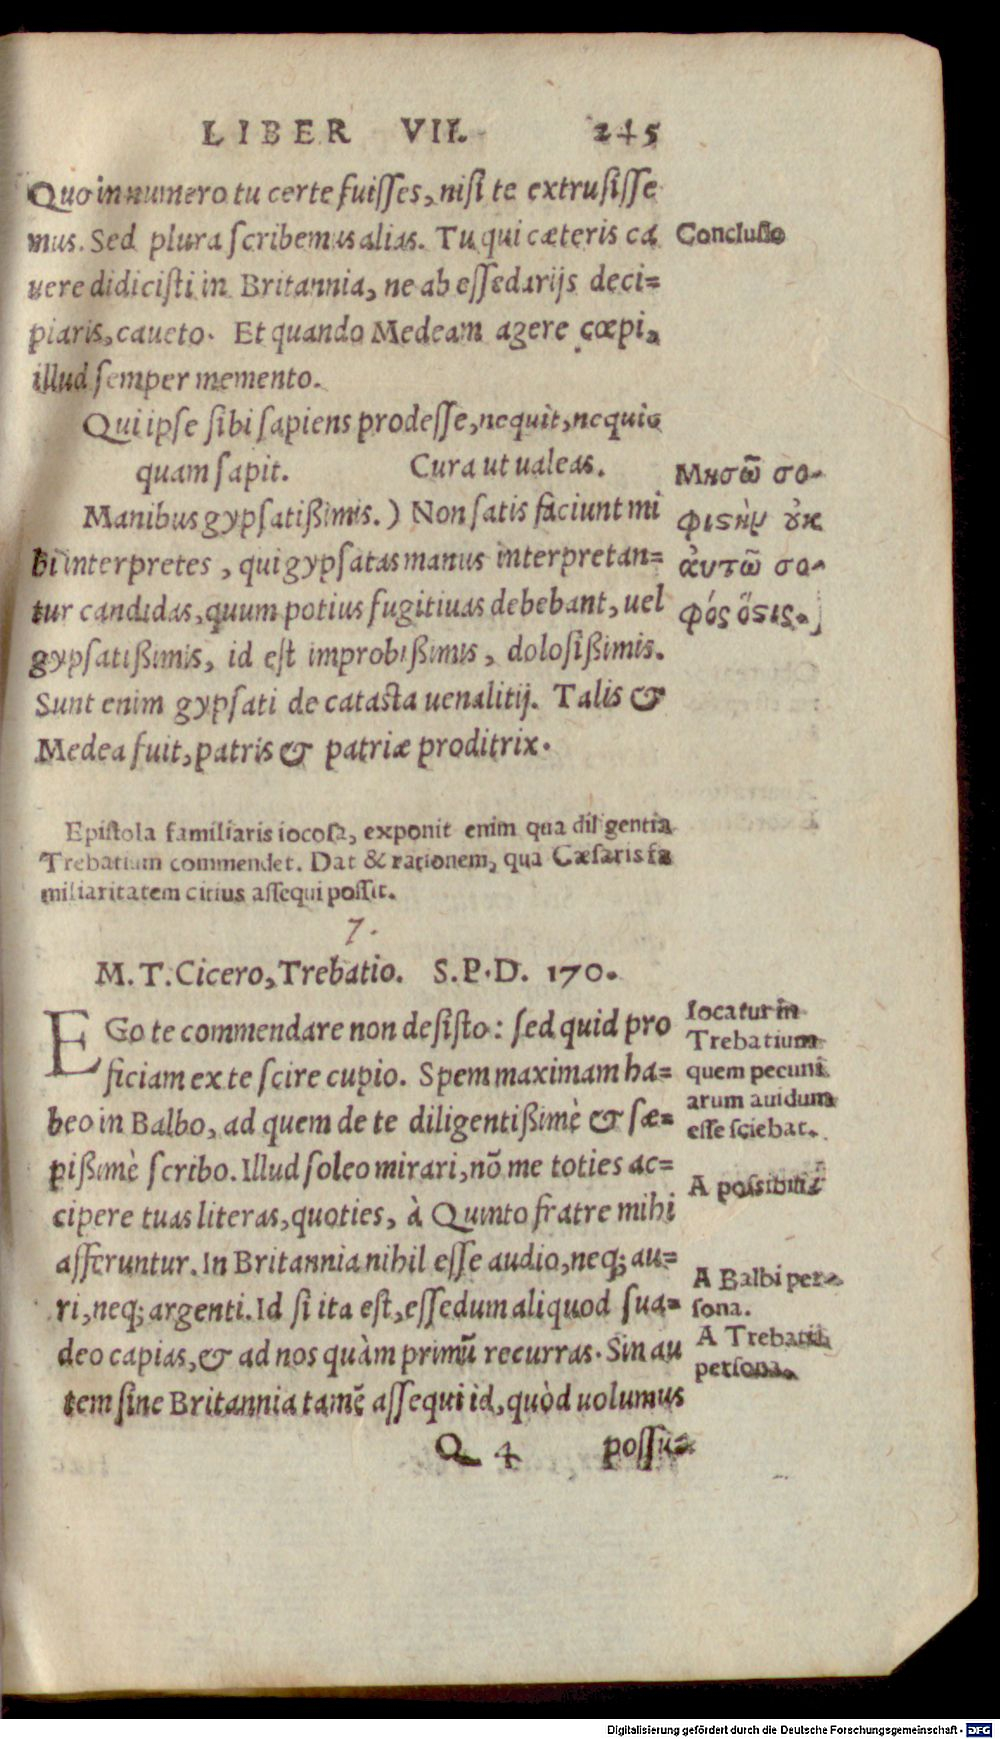 LIBER VII. 245
Quo in numero tu certe fuisses, nisi te extrusisse
mus. Sed plura scribemus alias. Tu qui cæteris ca
uere didicisti in Britannia, ne ab essedarijs deci=
piaris, caueto. Et quando Medeam agere cœpi,
illud semper memento.
Qui ipse sibi sapiens prodesse, nequit, nequic
quam sapit. Cura ut ualeas.
Manibus gypsatißimis.) Non satis faciunt mi
bi interpretes, qui gypsatas manus interpretan=
tur candidas, quum potius fugitiuas debebant, uel
gypsatißimis, id est improbißimis, dolosißimis.
Sunt enim gypsati de catasta uenalitij. Talis &
Medea fuit, patris & patriæ proditrix.
Conclusio
Μησῶ σο-
φιστὴν οὐκ
αὐτῶ σο-
φός ὅστις.
Epistola familiaris iocosa, exponit enim qua diligentia
Trebatium commendet. Dat & rationem, qua Cæsaris fa
miliaritatem citius assequi possit.
7.
M. T. Cicero, Trebatio. S. P. D. 170.
EGo te commendare non desisto: sed quid pro
ficiam ex te scire cupio. Spem maximam ha=
beo in Balbo, ad quem de te diligentißimè & sæ=
pißimè scribo. Illud soleo mirari, nō me toties ac=
cipere tuas literas, quoties, à Quinto fratre mihi
afferuntur. In Britannia nihil esse audio, neq; au=
ri, neq; argenti. Id si ita est, essedum aliquod sua=
deo capias, & ad nos quàm primū recurras. Sin au
tem sine Britannia tamē assequi id, quòd uolumus
Iocatur in
Trebatium
quem pecuni
arum auidum
esse sciebat.
A possibili
A Balbi per-
sona.
A Trebatii
persona.
Q 4 possu=
Digitalisierung gefördert durch die Deutsche Forschungsgemeinschaft - DFG